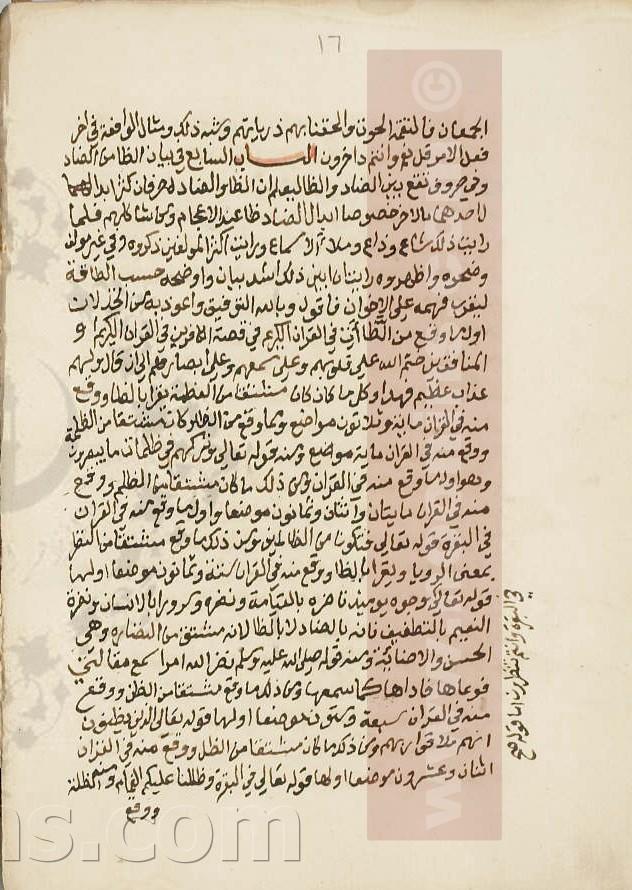 ١٦
الجمعان فالتقمه الحوت والحقنا بهم ذرياتهم وشبه ذلك ومثال الواقعة في اخر
فعل الامر قل نعم وانتم داخرون الباب السابع في بيان الظا من الضاد
وفي حروف تقع بين الضاد والظا ليعلم ان الظا والضاد حرفان كثر ابدال
احدهما بالاخر خصوصا ابدال الضاد ظا عند الاعجام ومن شاكلهم فلما
رايت ذلك شاع وذاع وملا الاسماع ورايت اكثر المولفين ذكروه وفي غير مولف
وضحوه واظهروه رايت ان ابين ذلك اشد بيان واوضحه حسب الطاقة
ليقرب فهمه على الاخوان فاقول وبالله التوفيق واعوذ به من الخذلان
اول ما وقع من الظا في القران الكريم في قصة الاخرين في القران الكريم و
المنافقين ختم الله على قلوبهم وعلى سمعهم وعلى ابصارهم الى ان قال ولهم
عذاب عظيم فهذا وكل ما كان مشتقا من العظمة يقرا بالظا ووقع
منه في القران ماية وثلاثون مواضع وما وقع من الظا وكان مشتقا من الظلمة
ووقع منه في القران ماية مواضع ومنه قوله تعالى وتركهم في ظلمات لا يبصرون
وهو اول ما وقع منه في القران ومن ذلك ما كان مشتقا من الظلم ووقع
منه في القران مايتان واثنان وثمانون موضعا واول ما وقع منه في القران
في البقرة قوله تعالى فتكونا من الظالمين ومن ذلك ما وقع مشتقا من النظر
بمعنى الرويا ويقرا بالظا ووقع منه في القران ستة وثمانون موضعا اولها
قوله تعالى وجوه يوميذ ناضره بالقيامة ونضره وسرورا بالانسان ونضرة
النعيم بالتطفيف فانه بالضاد لا بالظا لانه مشتق من النضاره وهي
الحسن والاضائة ومنه قوله صلى الله عليه وسلم نضر الله امرا سمع مقالتي
فوعاها فاداها كما سمعها ومن ذلك ما وقع مشتقا من الظن ووقع
منه في القران سبعة وستون موضعا اولها قوله تعالى الذين يظنون
انهم ملاقوا ربهم ومن ذلك ما كان مشتقا من الظل ووقع منه في القران
اثنان وعشرون موضعا اولها قوله تعالى في البقرة وظللنا عليكم الغمام ومنه الظلة
ووقع
في البقرة وانتم تنظرون
ns.com